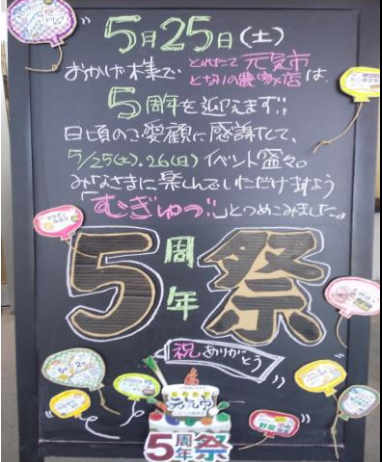 5月25日(土)
おかげ様で とれたて元気市
となりの農家店は
5周年を迎えます!!
日頃のご愛顧に感謝して、
5/25(土).26(日)イベント盛々。
みなさまに楽しんでいただけますよう
「むぎゅっ!!」とつめこみました。
5周年祭
祝 ありがとう
5周年祭